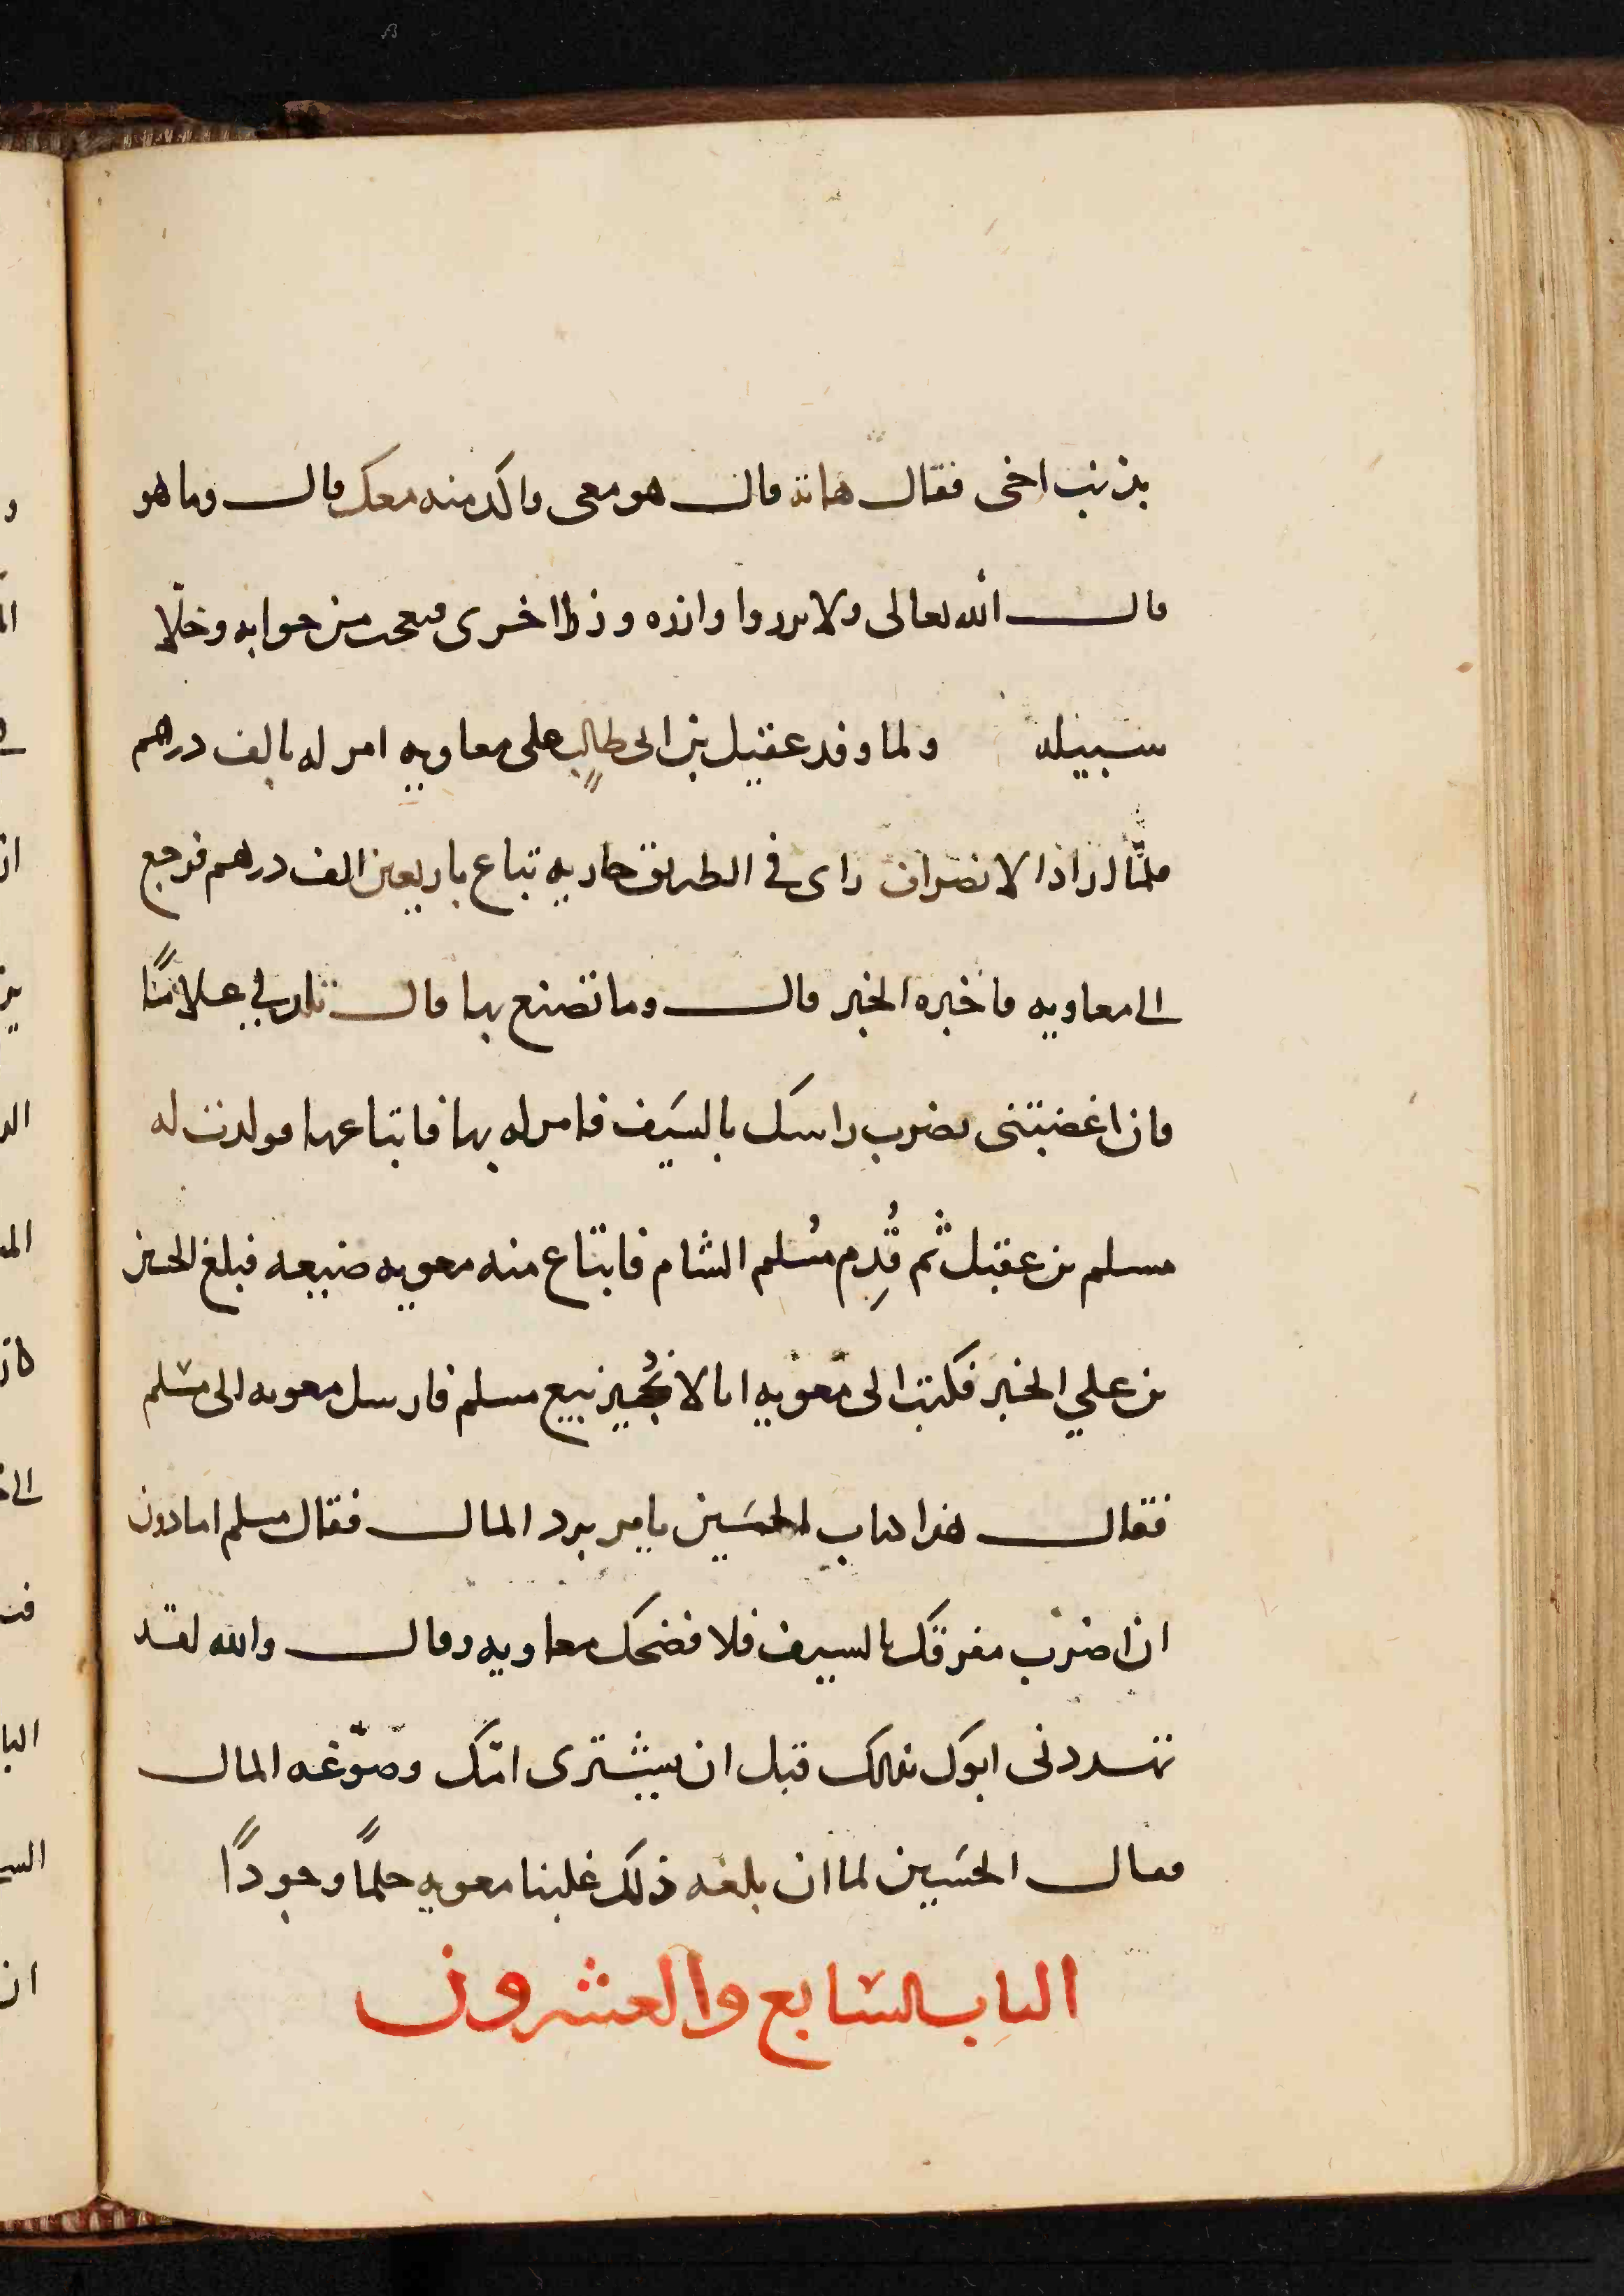 بذنب اخى فقال هاته قال هو معى واكد منه معك قال وما هو
قال الله تعالى ولا تزروا وازره وزرا اخرى فتعجب من جوابه وخلّا
سبيله ولما وفد عقيل بن ابى طالب على معاويه امر له بالف درهم
فلمّا اراد الانصراف راى في الطريق جاريه تباع باربعين الف درهم فرجع
الى معاويه فاخبره الخبر قال وما تصنع بها قال تلد لي غلامًا
فان اغضبتنى يضرب راسك بالسَيف فامر له بها فابتاعها فولدت له
مسلم بن عقيل ثم قُدِم مُسلم الشام فابتاع منه معويه ضيعه فبلغ الحسين
بن علي الخبر فكتب الى معويه انا لا نُجيز بيع مسلم فارسل معويه الى مسلم
فقال هذا كتاب الحسَين يامر برد المال فقال مسلم اما دون
ان اضرب مفرقك بالسيف فلا فضحك معاويه وقال والله لقد
تهددنى ابوك بذلك قبل ان يشترى امّك وصوّغه المال
فقال الحسَين لما ان بلغه ذلك غلبنا معويه حلمًا وجودًا
الباب السابع والعشرون